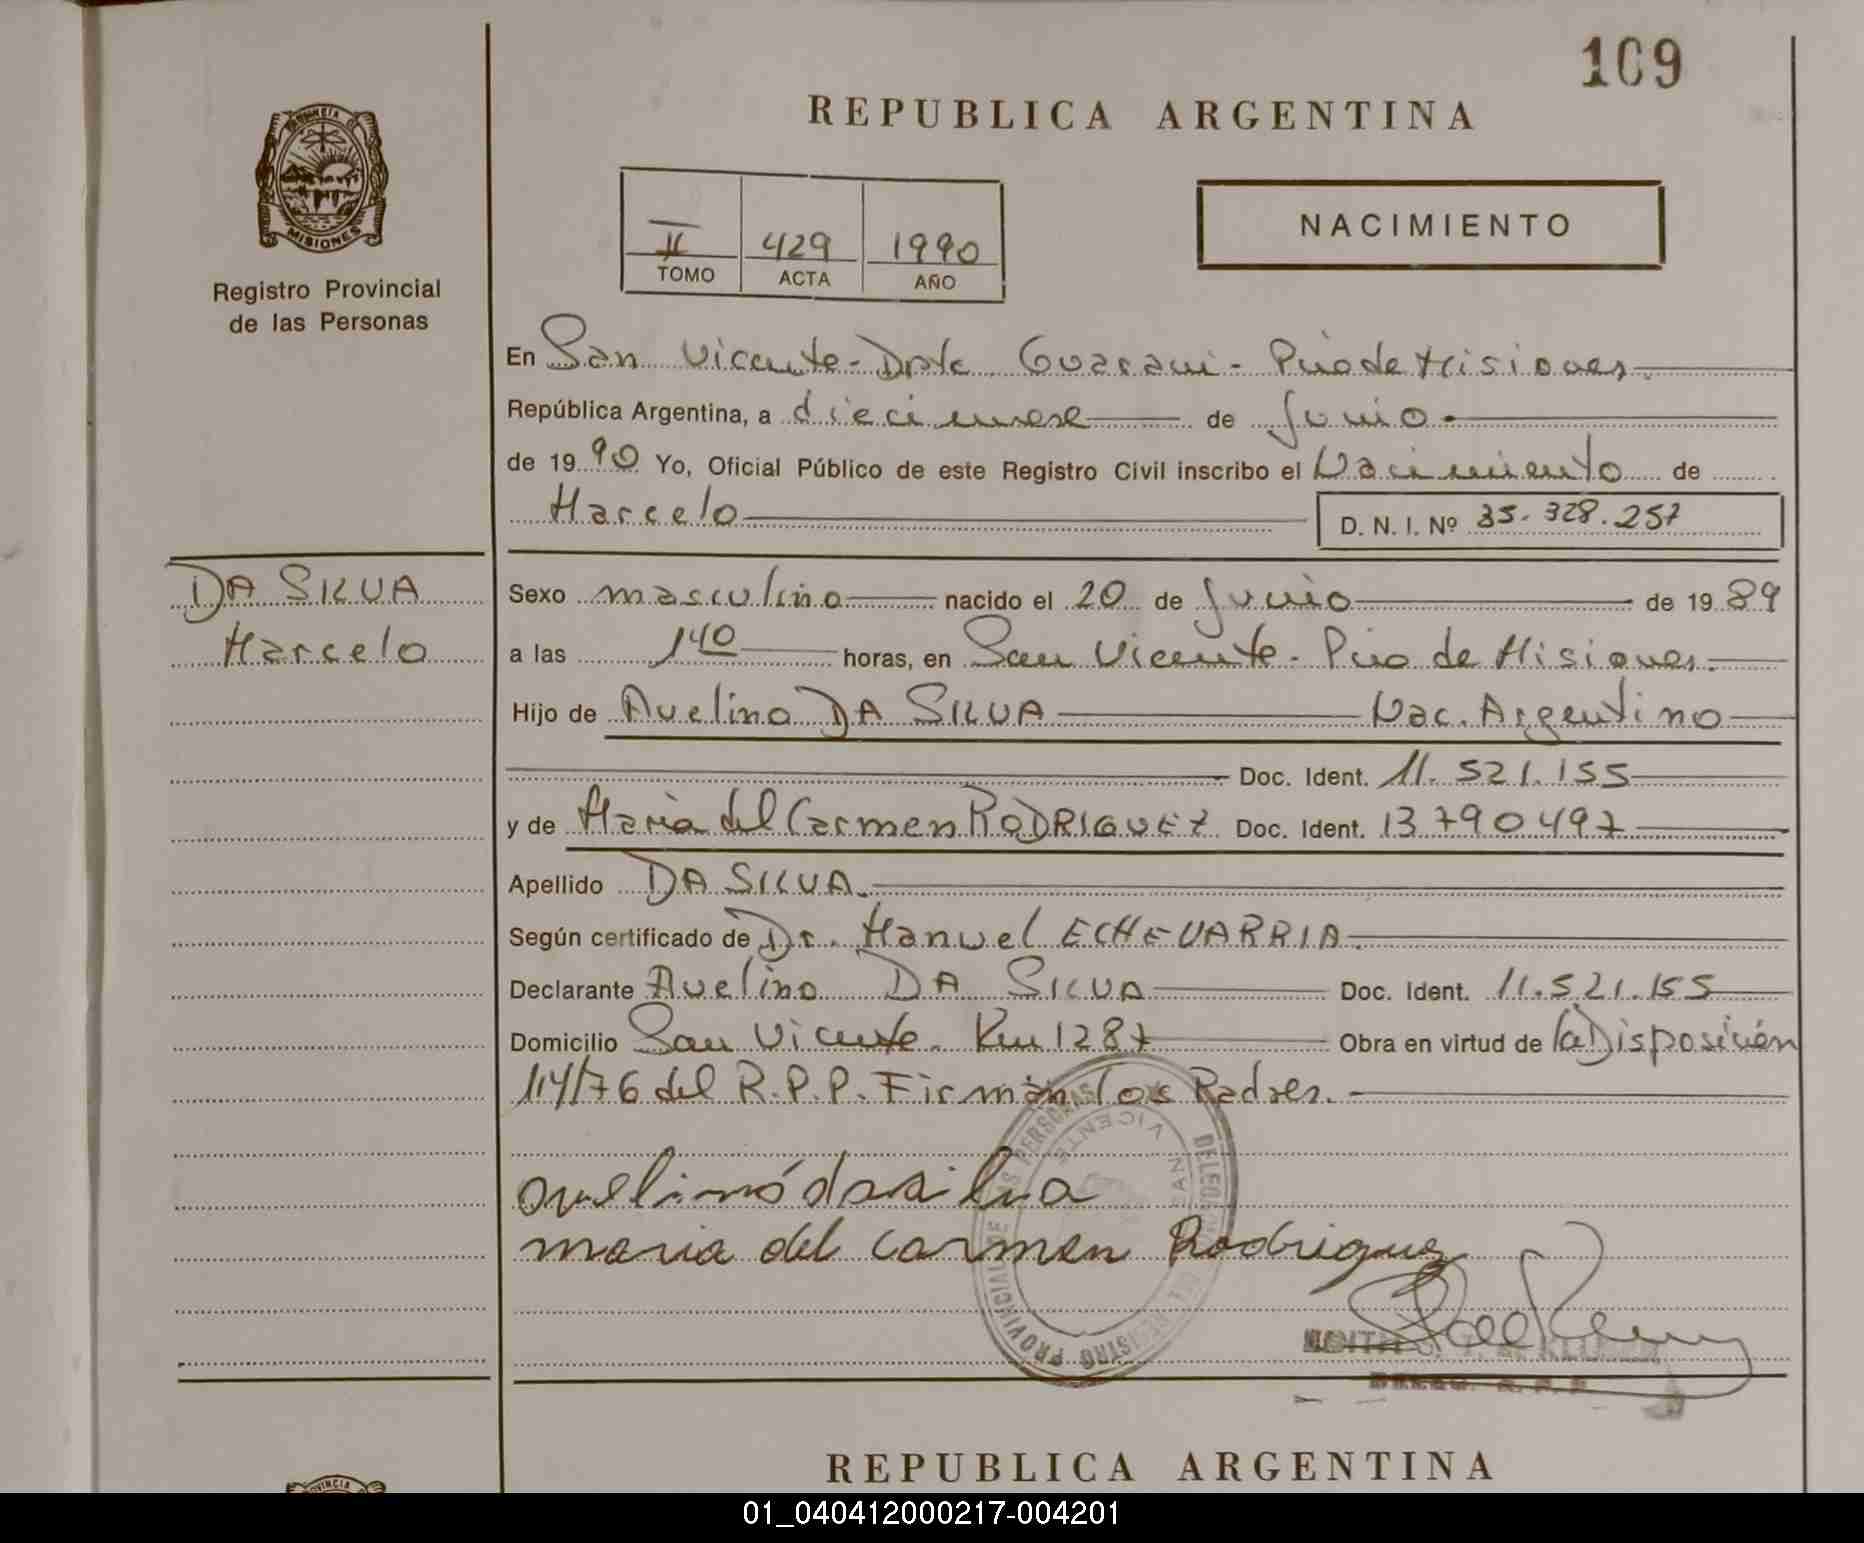 109
REPUBLICA ARGENTINA
PROVINCIA DE
MISIONES
Registro Provincial
de las Personas
II 429 1990
TOMO ACTA AÑO
NACIMIENTO
En San Vicente - Dpto. Guarani - Pvio de Misiones.
República Argentina, a diecinueve de Junio.
de 1990 Yo, Oficial Público de este Registro Civil inscribo el Nacimiento de
Marcelo D. N. I. Nº 35.328.257
DA SILVA
Marcelo
Sexo masculino nacido el 20 de Junio de 1989
a las 140 horas, en San Vicente - Pvio de Misiones.
Hijo de Avelino DA SILVA Nac. Argentino
Doc. Ident. 11.521.155
y de Maria del Carmen RODRIGUEZ Doc. Ident. 13790497
Apellido DA SILVA.
Según certificado de Dr. Manuel ECHEVARRIA.
Declarante Avelino DA SILVA Doc. Ident. 11.521.155
Domicilio San Vicente. Km 1287 Obra en virtud de la Disposición
114/76 del R.P.P. Firman los Padres.
avelino dasilva
maria del carmen Rodriguez
REGISTRO PROVINCIAL DE LAS PERSONAS
SAN VICENTE
REPUBLICA ARGENTINA
01_040412000217-004201